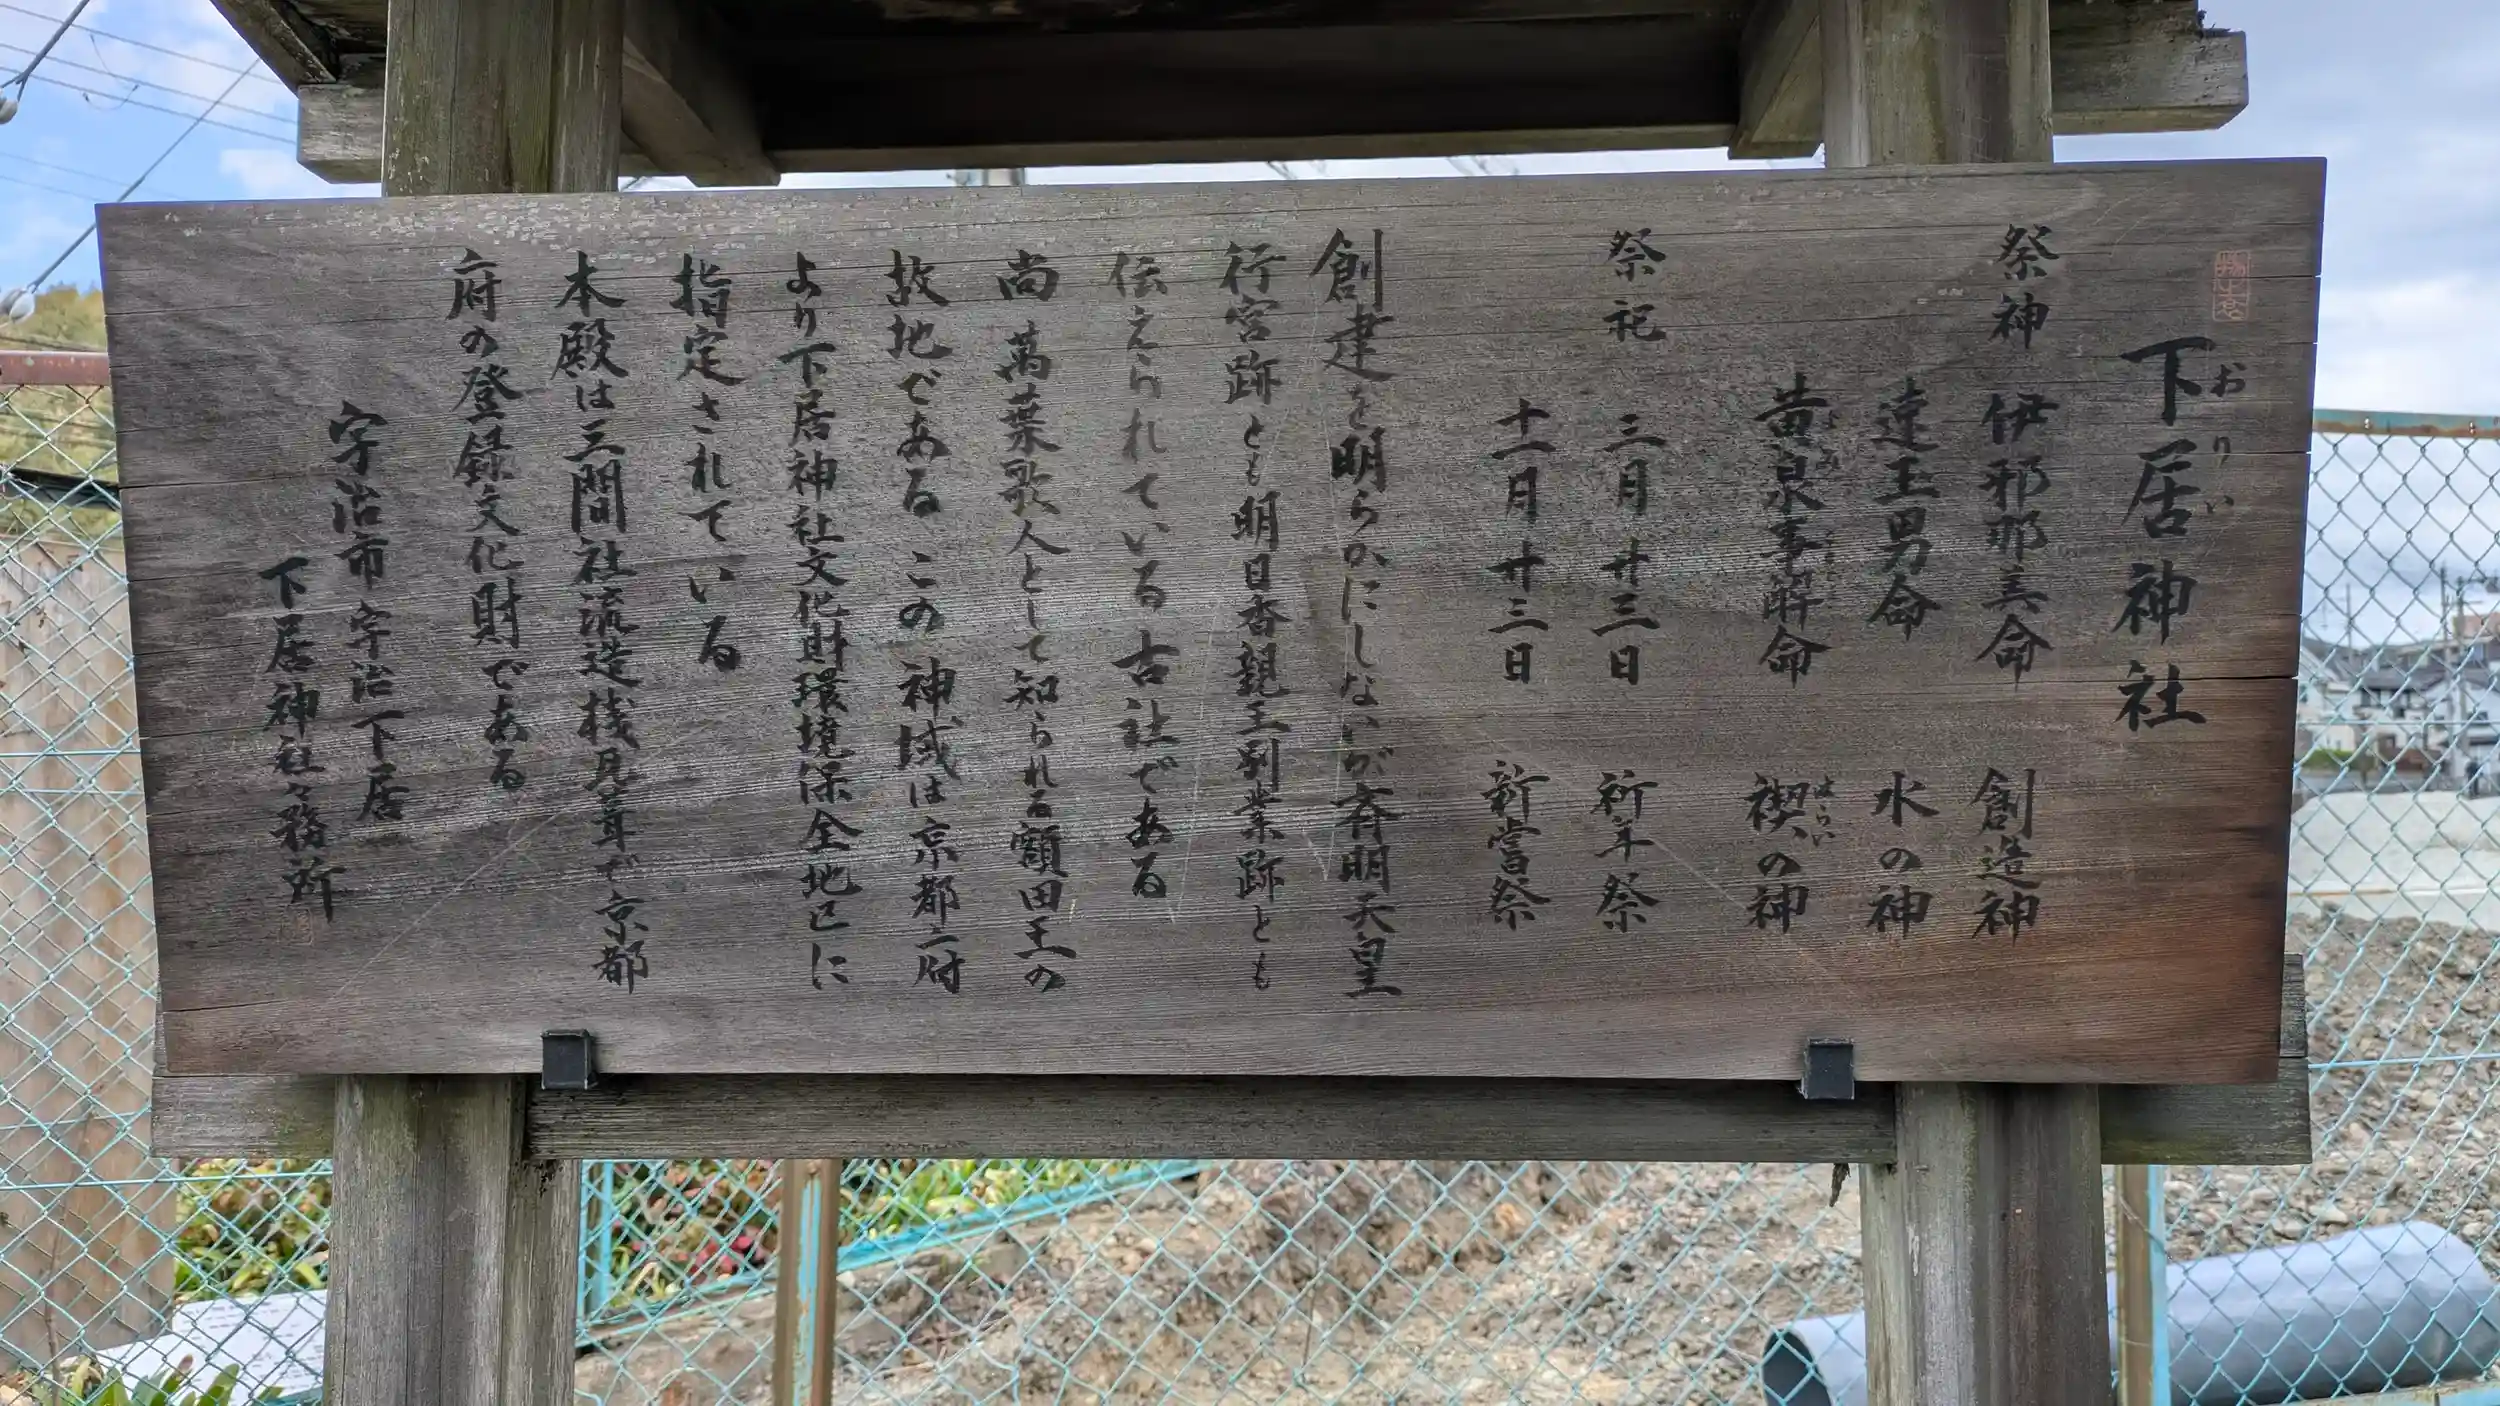 下居神社
おりい
祭神 伊邪那美命 創造神
速玉男命 水の神
黄泉事解命 禊の神
よみ はらい
祭祀 三月廿三日 祈年祭
十一月廿三日 新嘗祭
創建を明らかにしないが斉明天皇
行宮跡とも明日香親王別業跡とも
伝えられている古社である
尚 萬葉歌人として知られる額田王の
故地である この神域は京都府
より下居神社文化財環境保全地区に
指定されている
本殿は三間社流造桟瓦葺で京都
府の登録文化財である
宇治市宇治下居
下居神社々務所